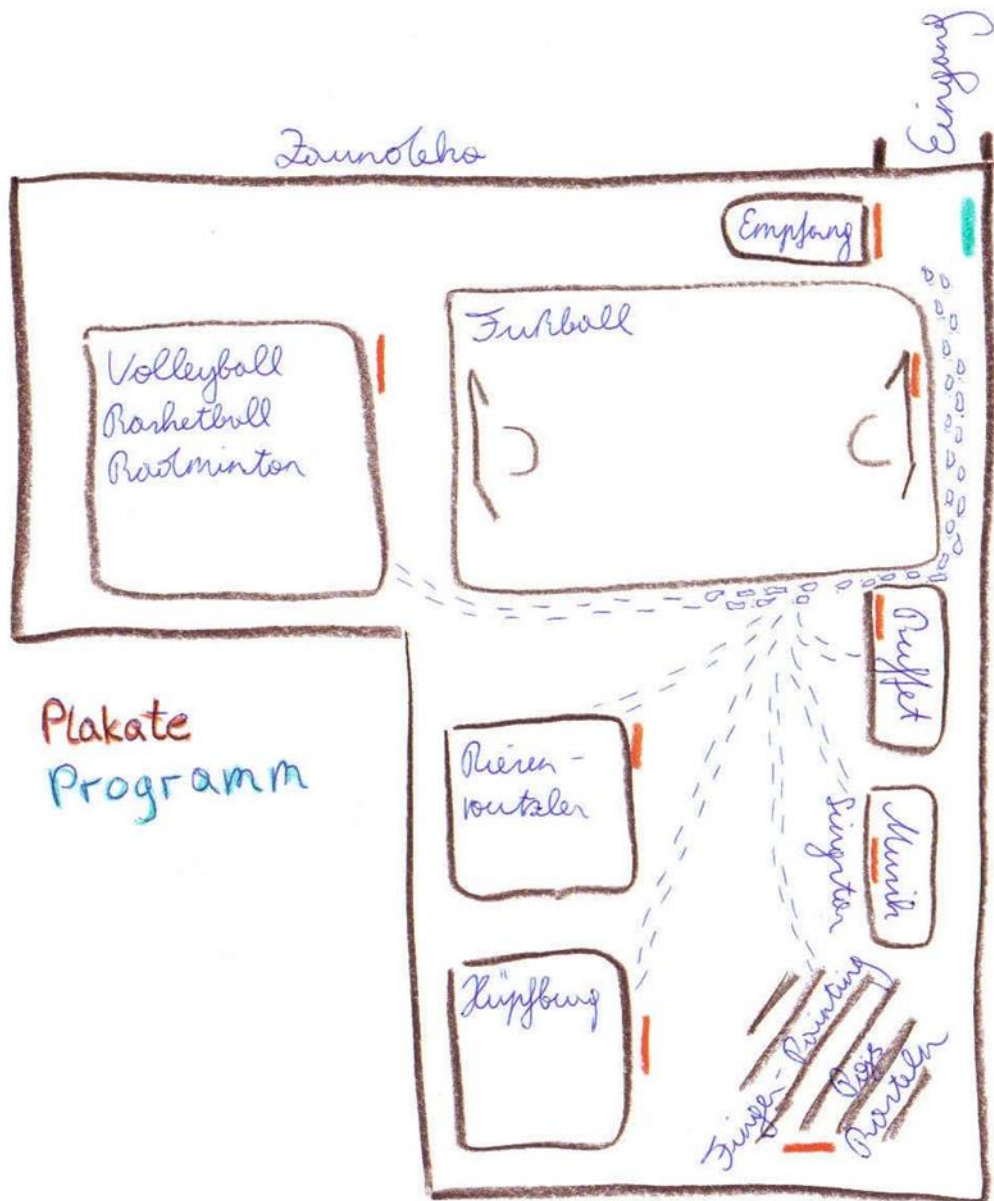 Eingang
Zaundeko
Empfang
Fußball
Volleyball
Basketball
Badminton
Buffet
Plakate
Programm
Riesen-
wutzler
Musik
Singstar
Hüpfburg
Finger-Painting
Basteln